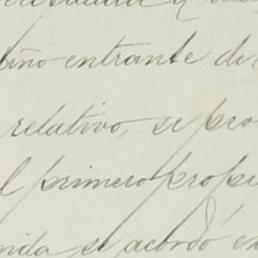 entrante de
relativo, se pro
l primero propi
se acordó